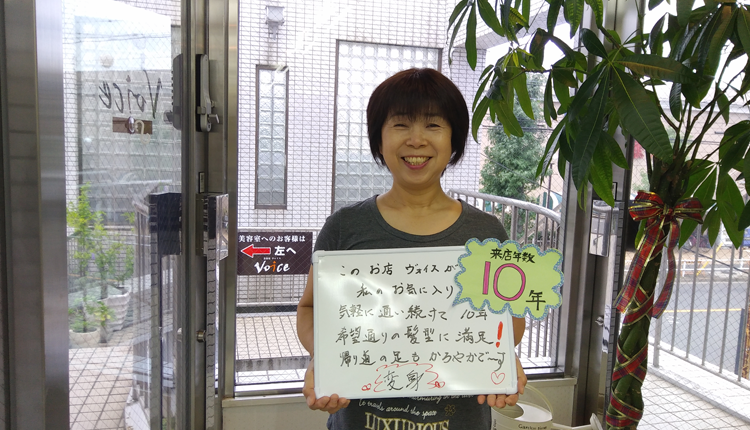 Voice
美容室へのお客様は
左へ
Voice
このお店 ヴォイスが
私の お気に入り
気軽に通い続けて 10年
希望通りの髪型に満足!
帰り道の足も かろやかで〜す
変身
来店年数
10年
LUXURIOUS